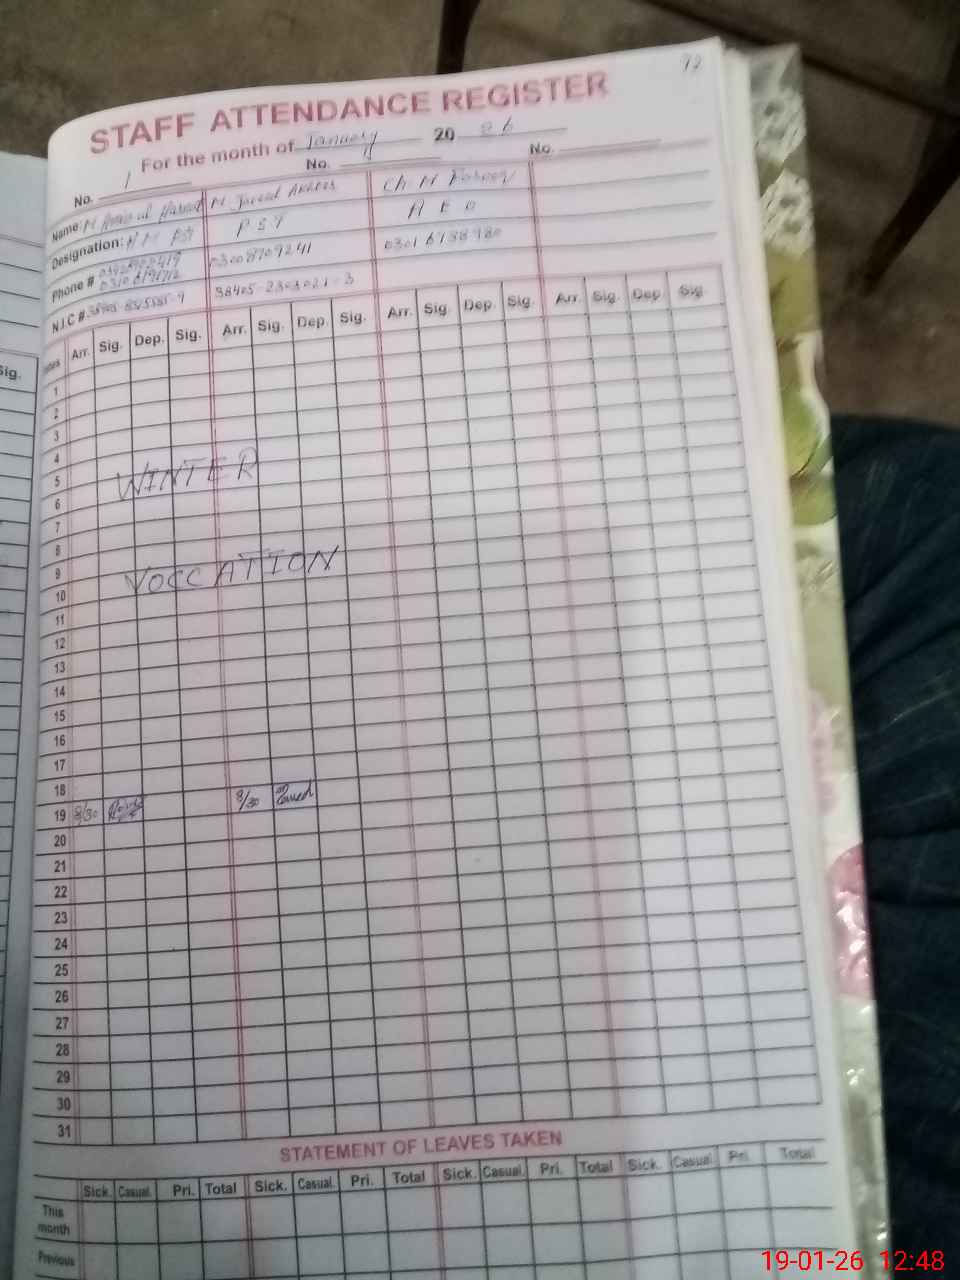 72
STAFF ATTENDANCE REGISTER
For the month of January 20 26
No. 1 No. No.
Name: M M Javed Akhter Ch. M
Designation: H M PST P S T A E O
Phone # 03008709241 0301 6738980
N.I.C # 38405-2303021-3
Sig.
Dates Arr. Sig. Dep. Sig. Arr. Sig. Dep. Sig. Arr. Sig. Dep. Sig. Arr. Sig. Dep. Sig.
1
2
3
4
5 WINTER
6
7
8
9
10 VOCCATION
11
12
13
14
15
16
17
18
19 8/30 8/30 Javed
20
21
22
23
24
25
26
27
28
29
30
31
STATEMENT OF LEAVES TAKEN
Sick. Casual. Pri. Total Sick. Casual. Pri. Total Sick. Casual. Pri. Total Sick. Casual. Pri. Total
This month
Previous
19-01-26 12:48